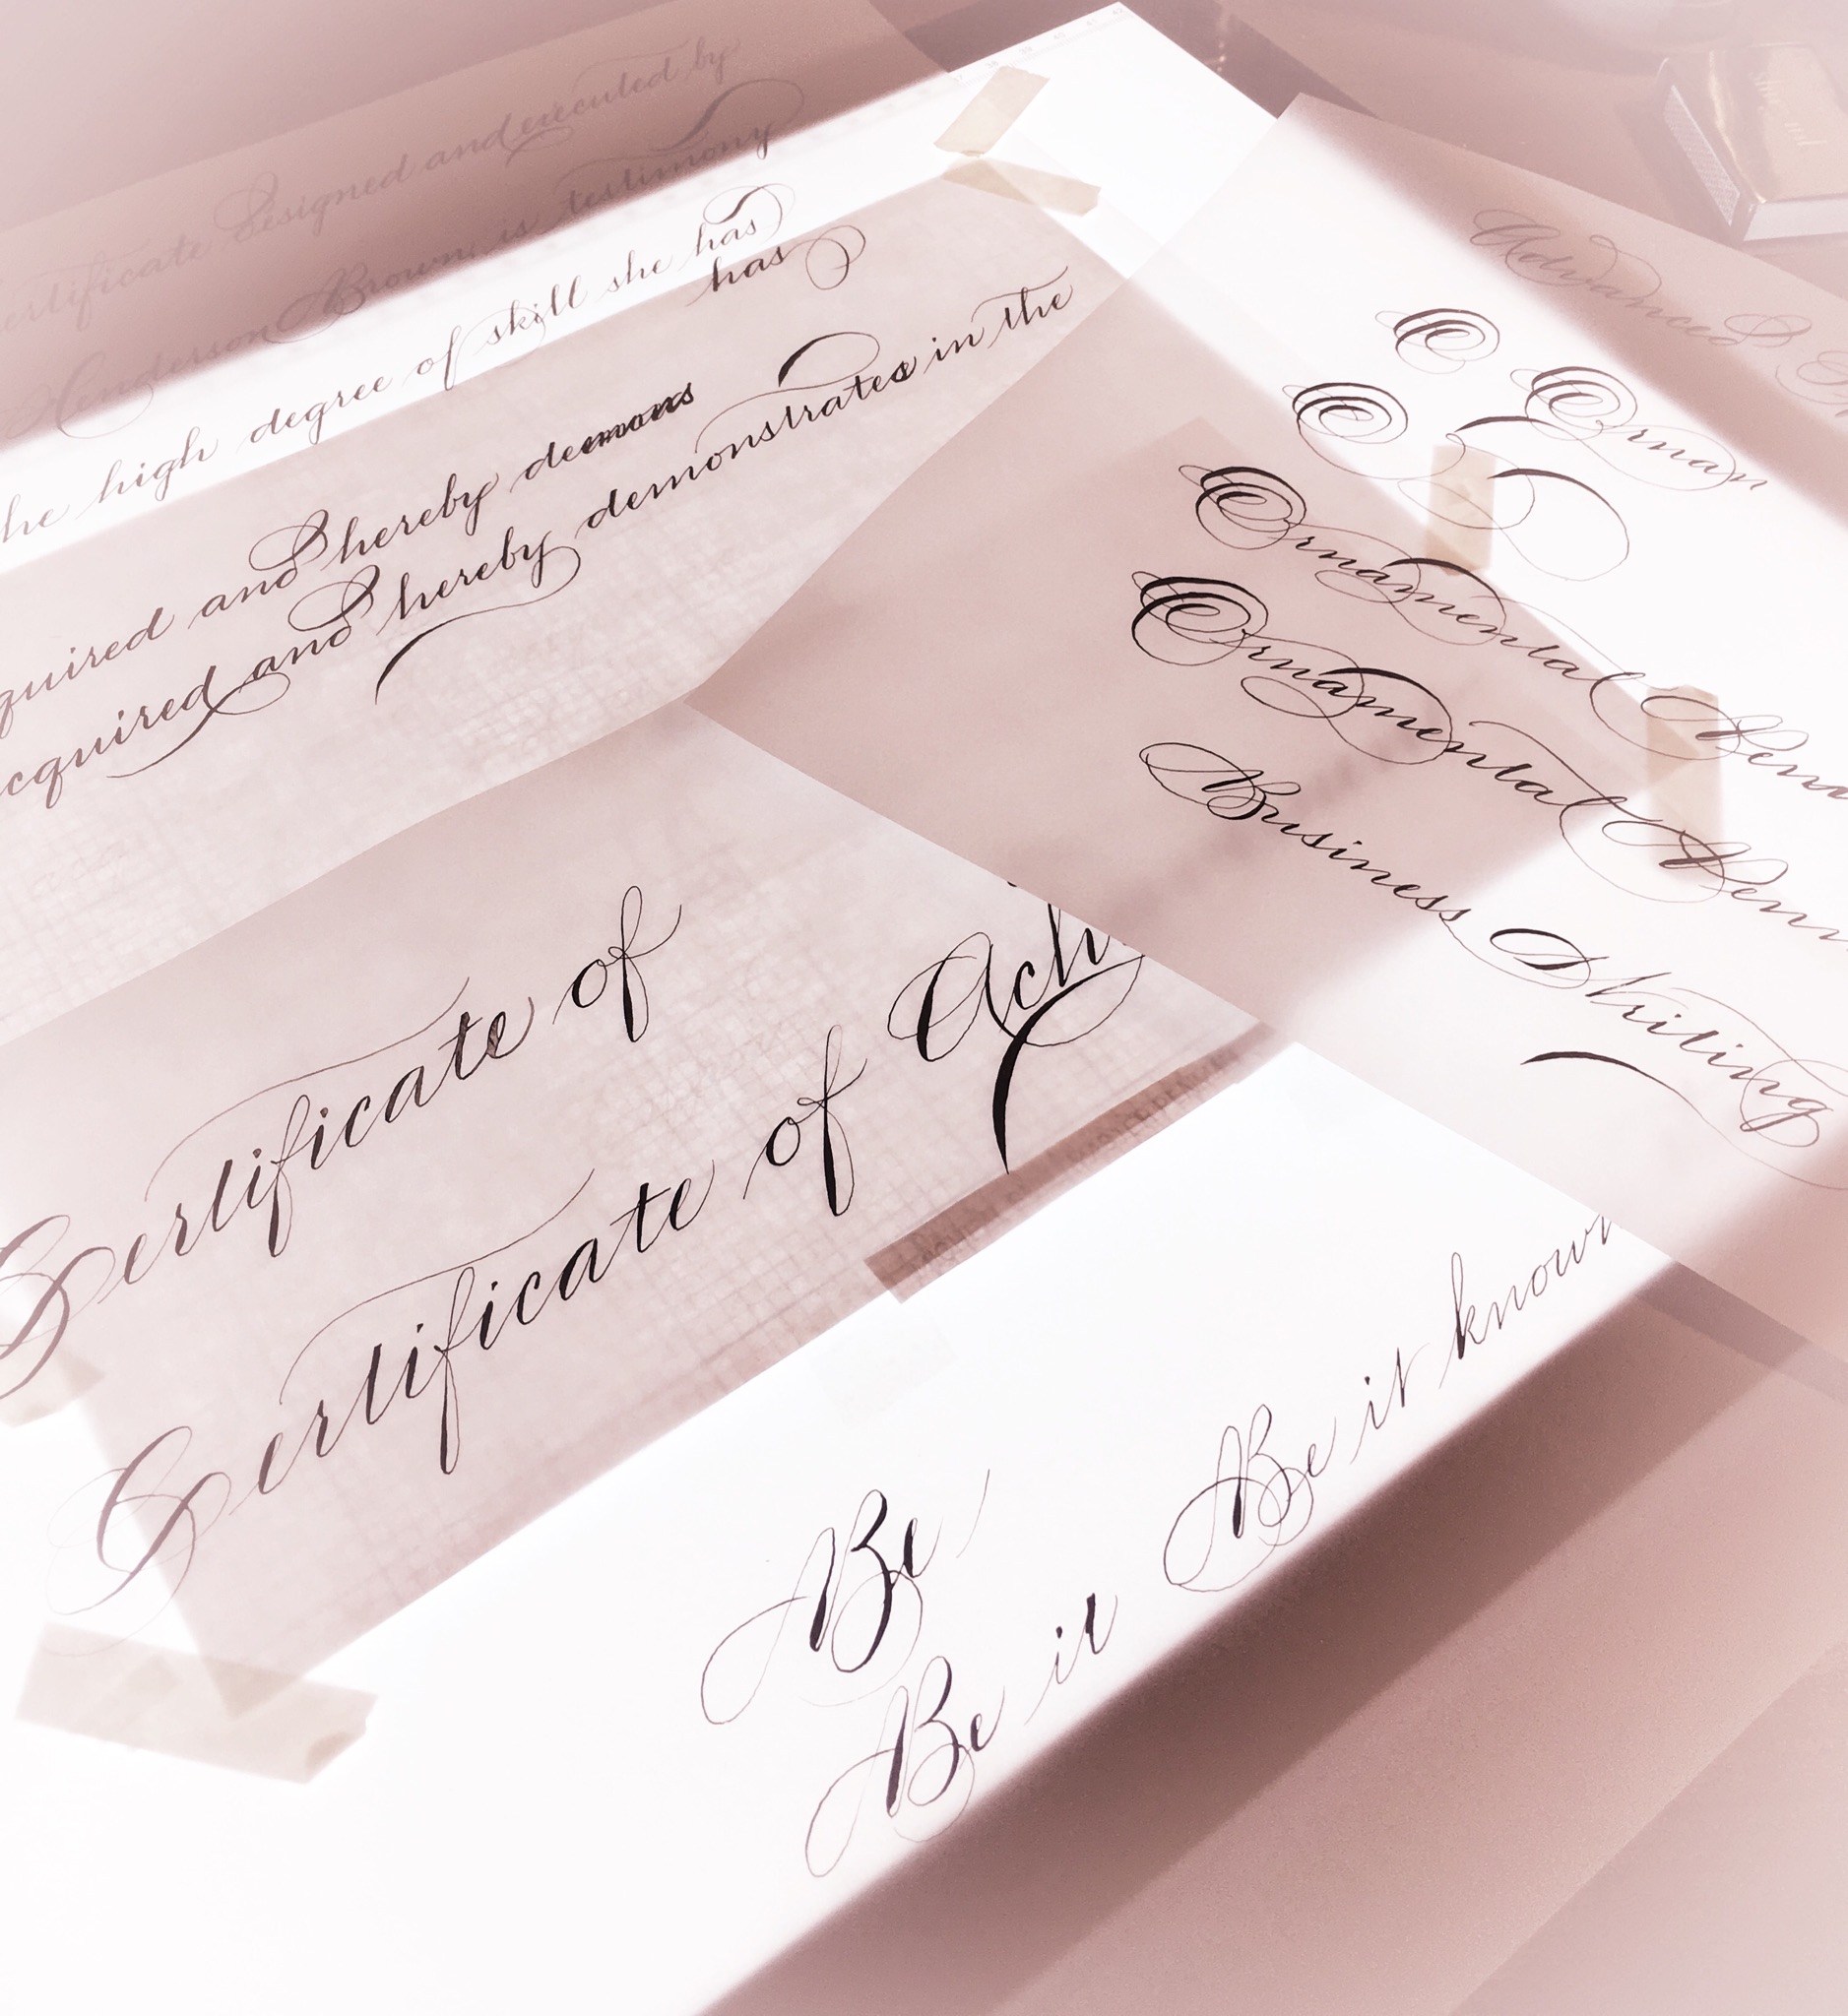 Certificate designed and executed by
Henderson Brown, is testimony
the high degree of skill she has
has
acquired and thereby demons
acquired and thereby demonstrates in the
Certificate of
Certificate of Ach
Be
Be it
Be it known
Advanced
O
O Ornam
Ornamental Penm
Ornamental Penm
Business Writing